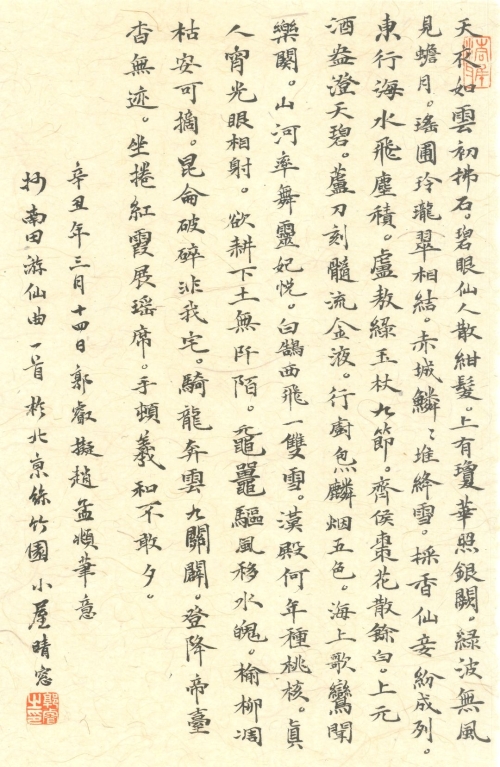 天夜如雲初拂石。碧眼仙人散紺髮。上有瓊華照銀闕。緑波無風
見蟾月。瑤圃玲瓏翠相結。赤城鱗〻堆絳雪。採香仙妾紛成列。
東行海水飛塵積。盧敖綠玉杖九節。齊侯棗花散餘白。上元
酒盎澄天碧。蘆刀刻髓流金液。行廚炰麟烟五色。海上歌鸞聞
樂闋。山河率舞靈妃悦。白鵠西飛一雙雪。漢殿何年種桃核。真
人宵光眼相射。欲耕下土無阡陌。黿鼉驅風移水魄。榆柳凋
枯安可摘。昆侖破碎非我宅。騎龍奔雲九關闢。登降帝臺
杳無迹。坐捲紅霞展瑶席。手頓羲和不敢夕。
辛丑年三月十四日郭睿擬趙孟頫筆意
抄南田游仙曲一首於北京絲竹園小屋晴窓
郭睿之印